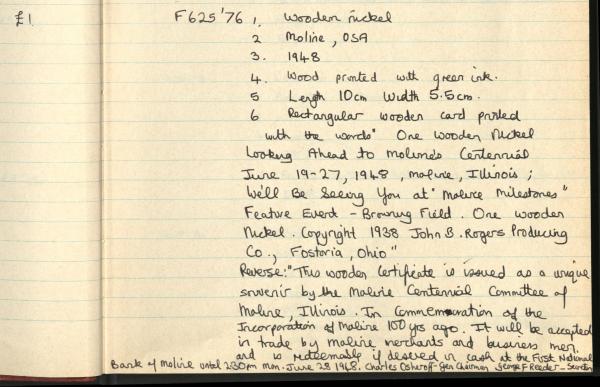 £1 F625'76 1. Wooden nickel
2 Moline, USA
3. 1948
4. Wood printed with green ink.
5 Length 10cm Width 5.5cm.
6 Rectangular wooden card printed
with the words "One Wooden Nickel
Looking Ahead to Moline's Centennial
June 19-27, 1948, Moline, Illinois;
We'll Be Seeing You at "Moline Milestones"
Feature Event - Browning Field. One wooden
Nickel. Copyright 1938 John B. Rogers Producing
Co., Fostoria, Ohio"
Reverse: "This wooden certificate is issued as a unique
souvenir by the Moline Centennial Committee of
Moline, Illinois. In Commemoration of the
Incorporation of Moline 100 yrs ago. It will be accepted
in trade by Moline merchants and business men.
and is redeemable if desired in cash at the First National
Bank of Moline until 2.30pm Mon. June 28 1948. Charles Osheroff - Gen Chairman George F Reeder - Secretary